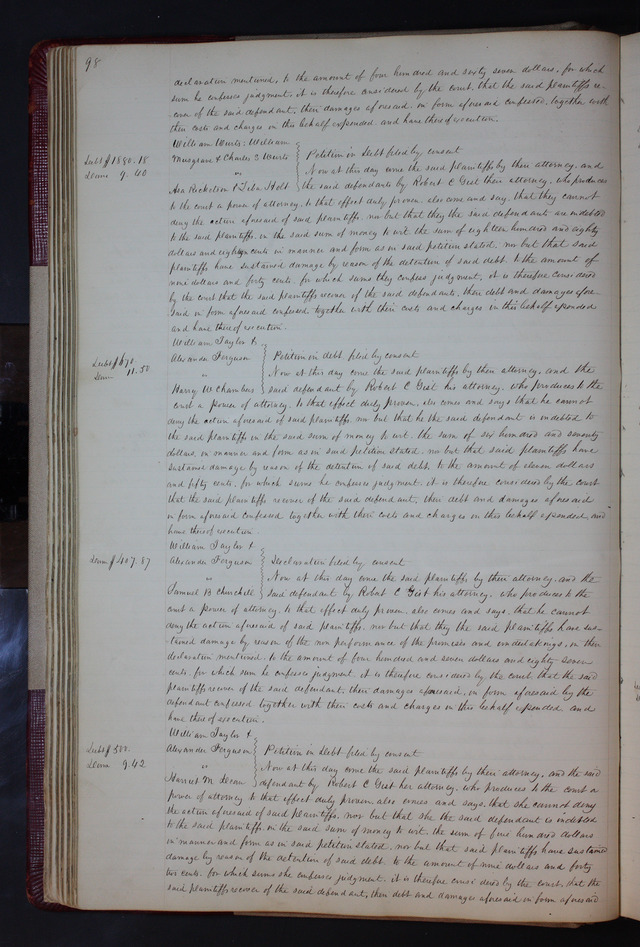 98
declaration mentioned, to the amount of four hundred and sixty seven dollars, for which
sum he confesses judgment, it is therefore considered by the court, that the said plaintiffs re-
cover of the said defendant, their damages aforesaid, in form aforesaid confessed, together with
their costs and charges in this behalf expended, and have thereof execution.
William Wurts, William
Musgrave & Charles S Wurts } Petition in Debt filed by consent
Debt $1880.18
Dam 9.40
" Now at this day come the said plaintiffs by their attorney, and
Asa Rickerson & Holt the said defendants by Robert C Geist their attorney, who produces
to the court a power of attorney, to that effect duly proven, also come and say, that they cannot
deny the action aforesaid of said plaintiffs, nor but that they the said defendant are indebted
to the said plaintiffs, in the said sum of money to wit, the sum of eighteen hundred and eighty
dollars and eighteen cents in manner and form as in said petition stated, nor but that said
plaintiffs have sustained damage by reason of the detention of said debt, to the amount of
nine dollars and forty cents, for which sums they confess judgment, it is therefore considered
by the court that the said plaintiffs recover of the said defendants, their debt and damages afore-
said in form aforesaid confessed, together with their costs and charges in this behalf expended
and have thereof execution.
William Taylor &
Alexander Ferguson } Petition in debt filed by consent
Debt $670.
Dam 11.50
" Now at this day come the said plaintiffs by their attorney, and the
Harry W Chambers said defendant by Robert C Geist his attorney, who produces to the
court a power of attorney, to that effect duly proven, also comes and says that he cannot
deny the action aforesaid of said plaintiffs, nor but that he the said defendant is indebted to
the said plaintiffs in the said sum of money to wit, the sum of six hundred and seventy
dollars, in manner and form as in said petition stated, nor but that said plaintiffs have
sustained damage by reason of the detention of said debt, to the amount of eleven dollars
and fifty cents, for which sums he confesses judgment, it is therefore considered by the court
that the said plaintiffs recover of the said defendant, their debt and damages aforesaid
in form aforesaid confessed together with their costs and charges in this behalf expended, and
have thereof execution.
William Taylor &
Alexander Ferguson } Declaration filed by consent
Dam $407.87
" Now at this day come the said plaintiffs by their attorney, and the
Samuel B Churchill said defendant by Robert C Geist his attorney, who produces to the
court a power of attorney, to that effect duly proven, also comes and says, that he cannot
deny the action aforesaid of said plaintiffs, nor but that they the said plaintiffs have sus-
tained damage by reason of the non performance of the promises and undertakings, in their
declaration mentioned, to the amount of four hundred and seven dollars and eighty seven
cents, for which sum he confesses judgment, it is therefore considered by the court that the said
plaintiffs recover of the said defendant, their damages aforesaid, in form aforesaid by the
defendant confessed together with their costs and charges in this behalf expended and
have thereof execution.
William Taylor &
Alexander Ferguson } Petition in Debt filed by consent
Debt $500.
Dam 9.42
" Now at this day come the said plaintiffs by their attorney, and the said
Harriet M Deane defendant by Robert C Geist her attorney, who produces to the court a
power of attorney to that effect duly proven, also comes and says, that she cannot deny
the action aforesaid of said plaintiffs, nor but that she the said defendant is indebted
to the said plaintiffs, in the said sum of money to wit, the sum of five hundred dollars
in manner and form as in said petition stated, nor but that said plaintiffs have sustained
damage by reason of the detention of said debt, to the amount of nine dollars and forty
two cents, for which sums she confesses judgment, it is therefore considered by the court, that the
said plaintiffs recover of the said defendant, their debt and damages aforesaid in form aforesaid